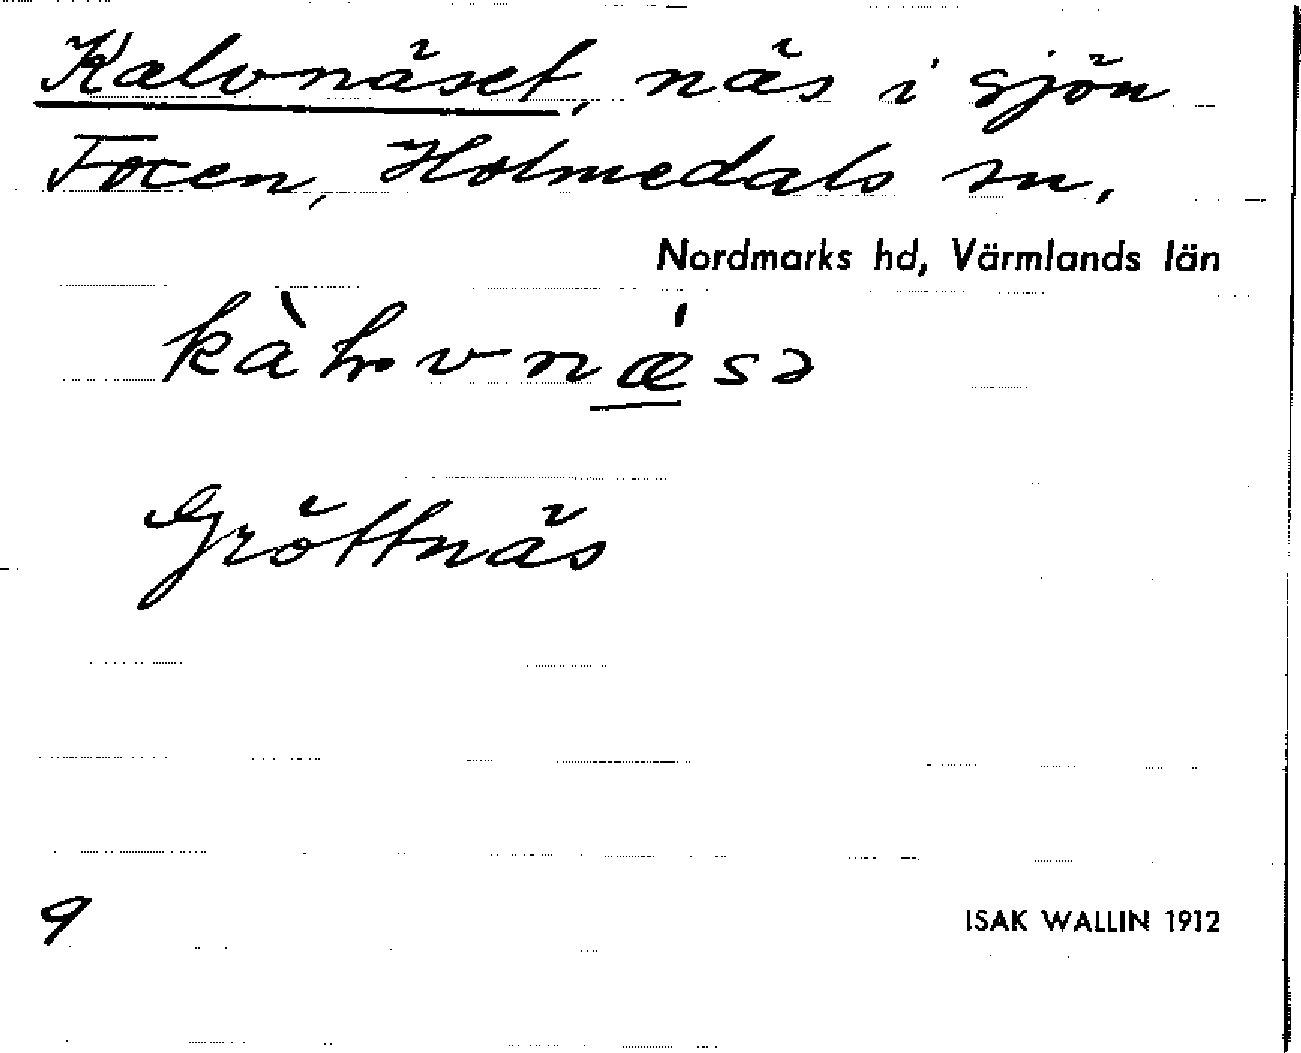 Kalvnäset, näs i sjön
Foxen, Holmedals sn,
Nordmarks hd, Värmlands län
Gröttnäs
9
ISAK WALLIN 1912